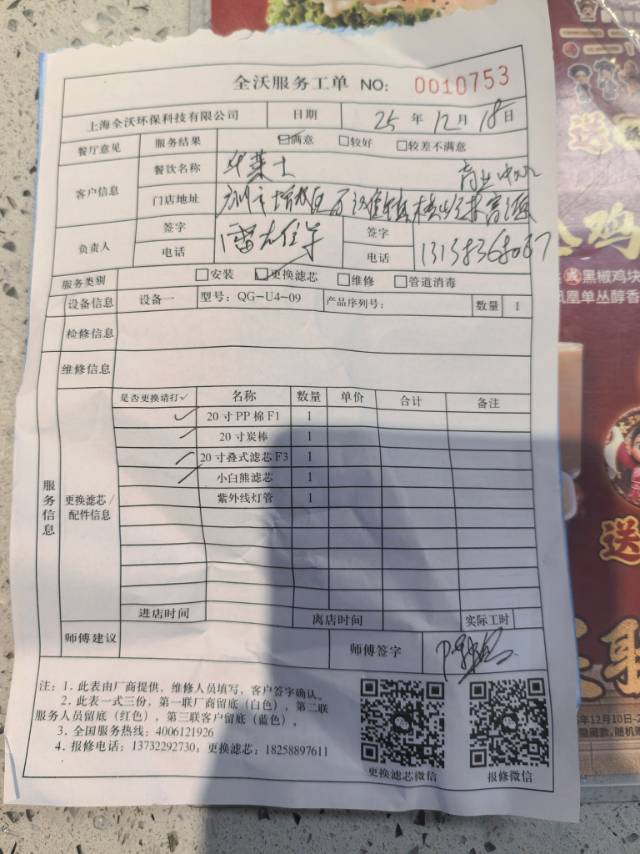 全沃服务工单 NO: 0010753
上海全沃环保科技有限公司 日期 25 年 12 月 18 日
餐厅意见 服务结果 ☑满意 □较好 □较差不满意
客户信息 餐饮名称 华莱士
门店地址 广州市增城区
负责人 签字 签字
电话 电话
服务类别 □安装 ☑更换滤芯 □维修 □管道消毒
设备信息 设备一 型号: QG-U4-09 产品序列号: 数量 1
检修信息
维修信息
服务信息
更换滤芯/配件信息
是否更换请打✓ 名称 数量 单价 合计 备注
✓ 20寸PP棉F1 1
✓ 20寸炭棒 1
✓ 20寸叠式滤芯F3 1
✓ 小白熊滤芯 1
紫外线灯管 1
进店时间 离店时间 实际工时
师傅建议 师傅签字
注: 1. 此表由厂商提供, 维修人员填写, 客户签字确认。
2. 此表一式三份, 第一联厂商留底(白色), 第二联
服务人员留底(红色), 第三联客户留底(蓝色)。
3. 全国服务热线: 4006121926
4. 报修电话: 13732292730, 更换滤芯: 18258897611
更换滤芯微信 报修微信
送
鸡
黑椒鸡块
凤凰单丛醇香
送
12月10日-2